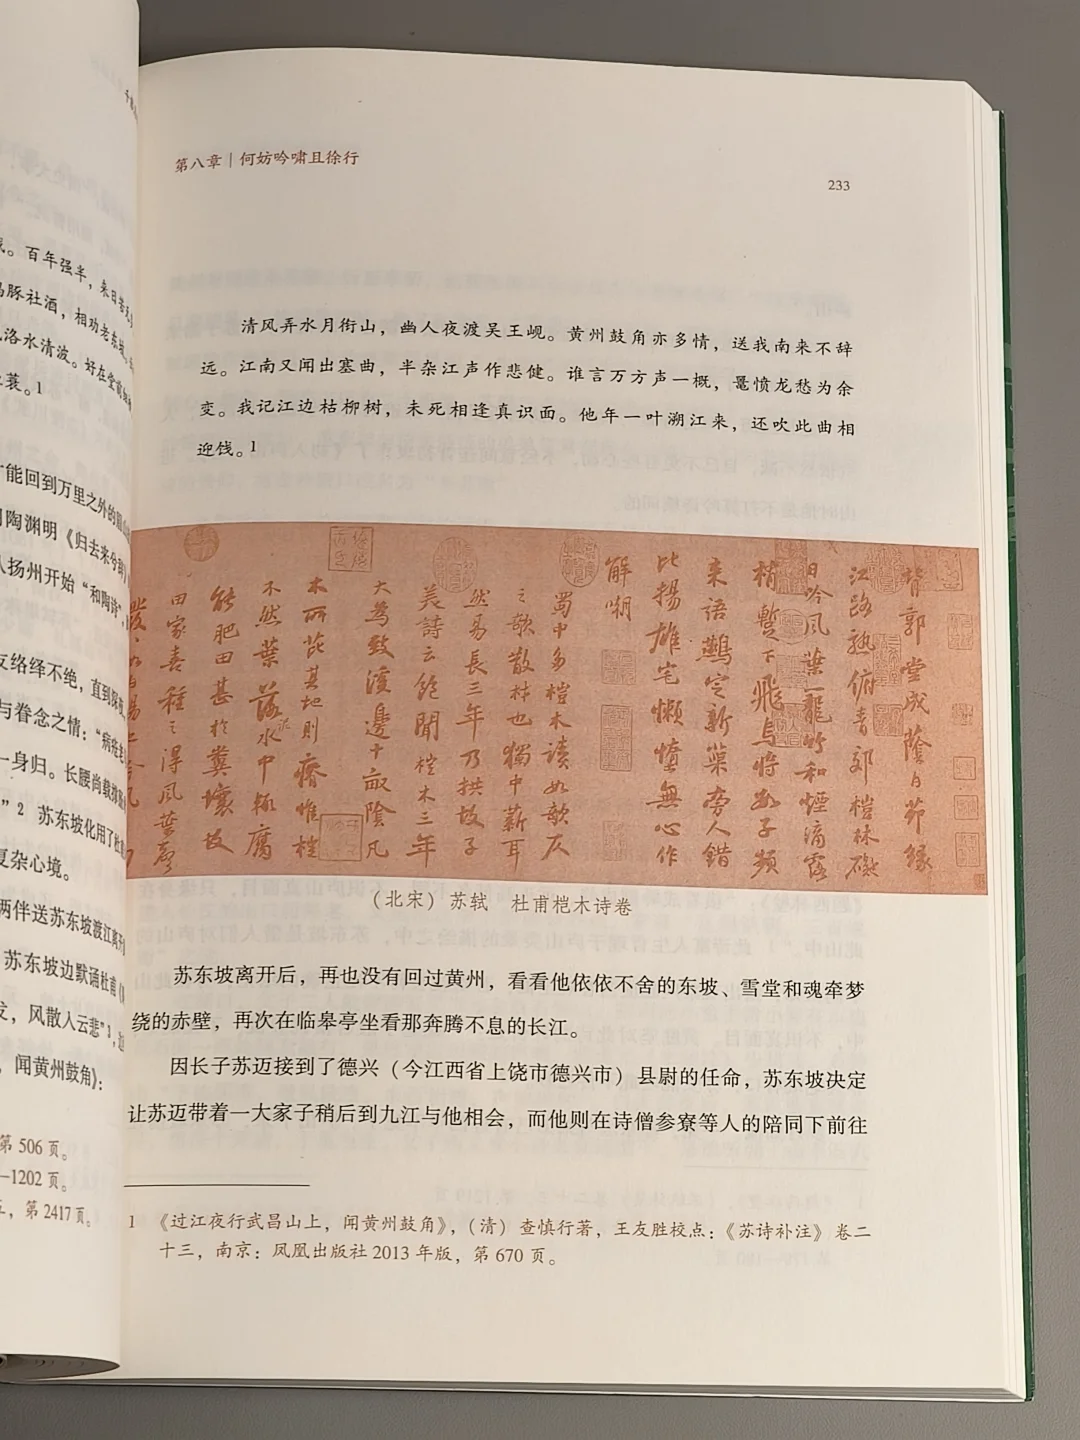 百年强半，来日苦无
豚社酒，相劝老东坡。
洛水清波。好在堂前细柳
蓑。1
能回到万里之外的眉山
陶渊明《归去来兮辞》
扬州开始“和陶诗”，
友络绎不绝，直到深夜
与眷念之情：“病疮老
一身归。长腰尚载撑
”2 苏东坡化用了杜甫
复杂心境。
两伴送苏东坡渡江离开
苏东坡边默诵杜甫
发，风散入云悲”3，
，闻黄州鼓角》：
第 506 页。
—1202 页。
第 2417 页。
第八章｜何妨吟啸且徐行
233
清风弄水月衔山，幽人夜渡吴王岘。黄州鼓角亦多情，送我南来不辞
远。江南又闻出塞曲，半杂江声作悲健。谁言万方声一概，鼍愤龙愁为余
变。我记江边枯柳树，未死相逢真识面。他年一叶溯江来，还吹此曲相
迎饯。1
背郭堂成蔭白茅緣
江路熟俯青郊榿林礙
日吟風葉籠竹和煙滴露
梢暫下飛烏將數子頻
来語鷰定新巢旁人錯
比揚雄宅懶惰無心作
解嘲
蜀中多榿木讀如欹仄
之欹散材也獨中薪耳
然易長三年乃拱故子
美詩云飽聞榿木三年
大為致溪邊十畝陰凡
木所芘其地則瘠惟榿
不然葉落水中輒腐
能肥田甚於糞壤故
田家喜種之得風葉聲
（北宋）苏轼　杜甫桤木诗卷
苏东坡离开后，再也没有回过黄州，看看他依依不舍的东坡、雪堂和魂牵梦
绕的赤壁，再次在临皋亭坐看那奔腾不息的长江。
因长子苏迈接到了德兴（今江西省上饶市德兴市）县尉的任命，苏东坡决定
让苏迈带着一大家子稍后到九江与他相会，而他则在诗僧参寥等人的陪同下前往
1 《过江夜行武昌山上，闻黄州鼓角》，（清）查慎行著，王友胜校点：《苏诗补注》卷二
十三，南京：凤凰出版社 2013 年版，第 670 页。